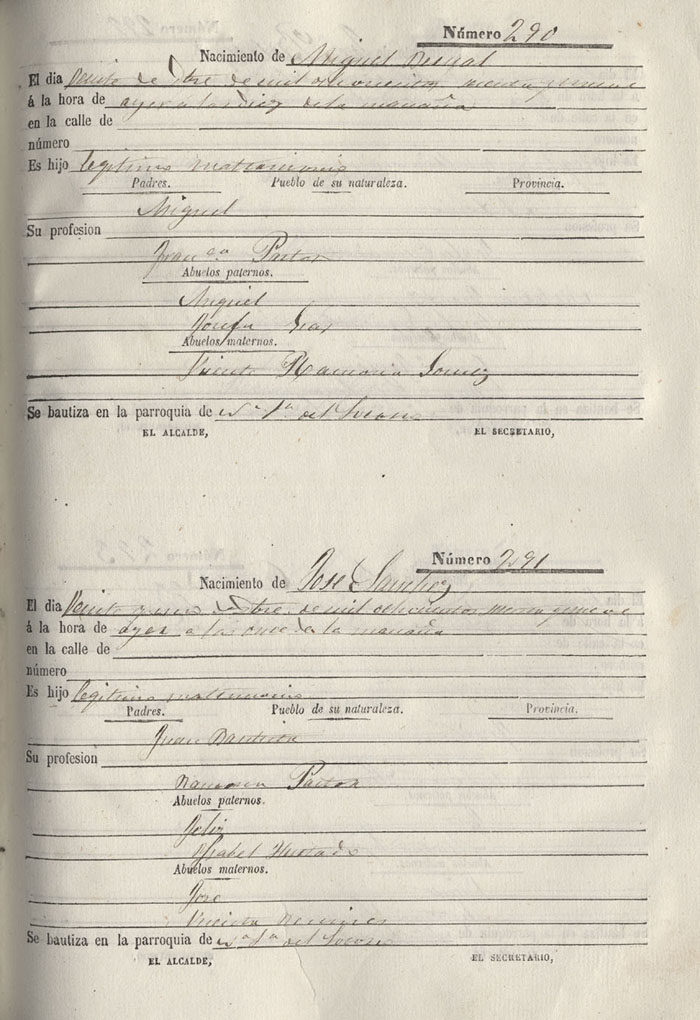 Número 290
Nacimiento de Miguel Bernal
El dia Veinte de Otre de mil ochocientos y nueve
á la hora de ayer a las diez de la mañana
en la calle de
número
Es hijo legitimo matrimonio
Padres. Pueblo de su naturaleza. Provincia.
Miguel
Su profesion
Franca Pastor
Abuelos paternos.
Miguel
Josefa
Abuelos maternos.
Vicente Ramona Gomez
Se bautiza en la parroquia de del Socorro
EL ALCALDE, EL SECRETARIO,
Número 291
Nacimiento de Jose Sanchez
El dia Veinte y uno de Otre de mil ochocientos y nueve
á la hora de ayer a las once de la mañana
en la calle de
número
Es hijo legitimo matrimonio
Padres. Pueblo de su naturaleza. Provincia.
Juan Bautista
Su profesion
Ramona Pastor
Abuelos paternos.
Felix
Ysabel Hurtado
Abuelos maternos.
Jose
Vicenta
Se bautiza en la parroquia de del Socorro
EL ALCALDE, EL SECRETARIO,